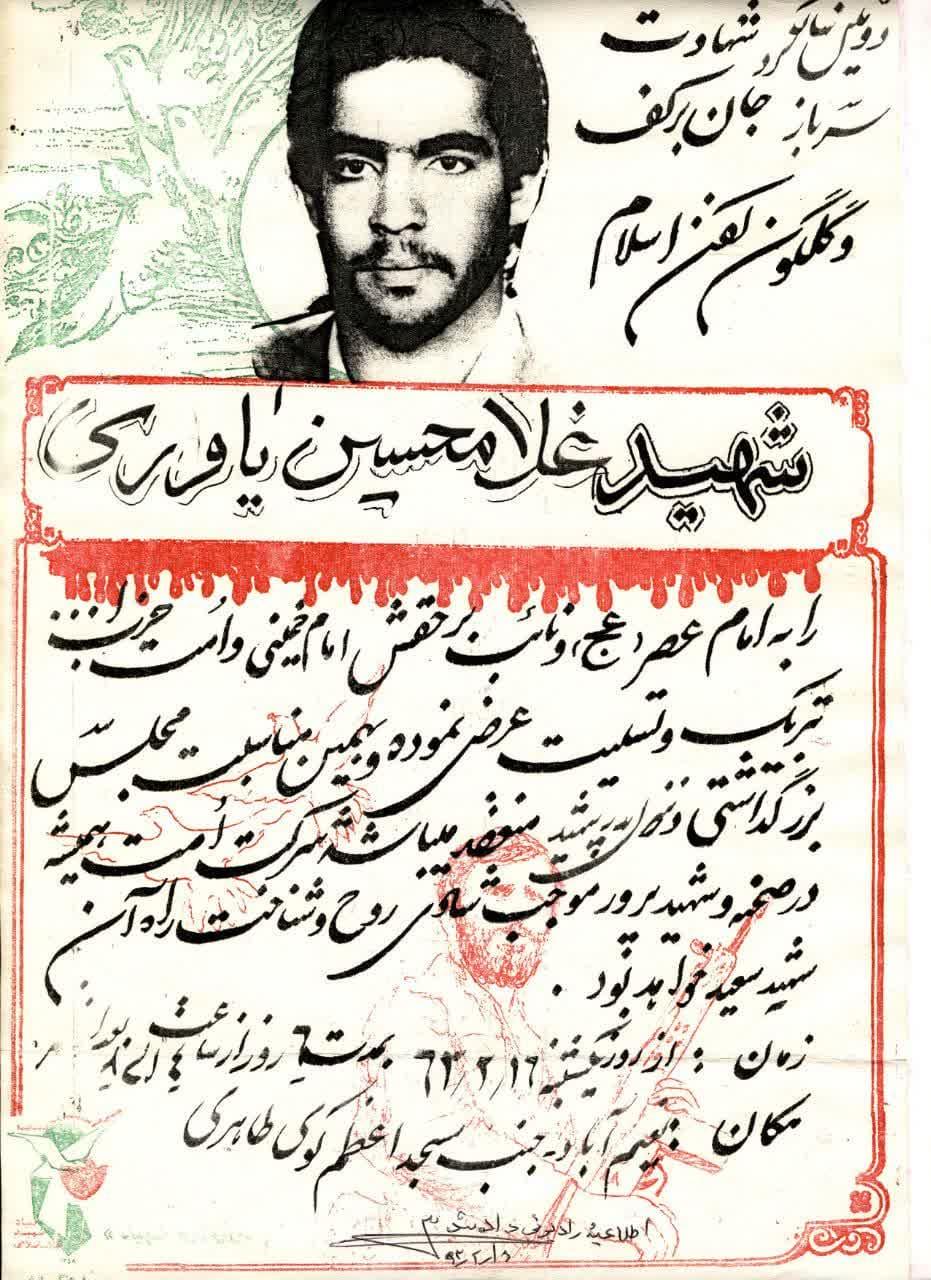 دومین سالگرد شهادت
سرباز جان برکف
و گلگون کفن اسلام
شهید غلامحسین یاوری
را به امام عصر (عج) و نائب برحقش امام خمینی و امت حزب الله
تبریک و تسلیت عرض نموده و بهمین مناسبت مجلس
بزرگداشتی در منزل پدر شهید منعقد میباشد شرکت اُمت همیشه
در صحنه و شهید پرور موجب شادی روح و شناخت راه آن
شهید سعید خواهد بود .
زمان : از روز یکشنبه ۶۳/۲/۱۶ بمدت ۶ روز از ساعت ۴ الی ۸
مکان : نعیم آباد جنب مسجد اعظم کوی طاهری
اطلاعیه رادیوئی داده شد